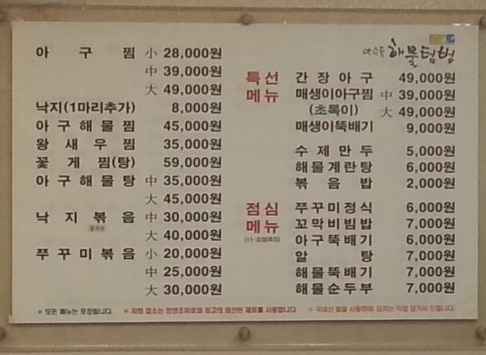 해물텀벙
아구찜 小 28,000원
中 39,000원
大 49,000원
낙지(1마리추가) 8,000원
아구해물찜 45,000원
왕새우찜 35,000원
꽃게찜(탕) 59,000원
아구해물탕 中 35,000원
大 45,000원
낙지볶음 中 30,000원
大 40,000원
쭈꾸미볶음 小 20,000원
中 25,000원
大 30,000원
특선메뉴
간장아구 49,000원
매생이아구찜 中 39,000원
(초록이) 大 49,000원
매생이뚝배기 9,000원
수제만두 5,000원
해물계란탕 6,000원
볶음밥 2,000원
점심메뉴
쭈꾸미정식 6,000원
꼬막비빔밥 7,000원
아구뚝배기 6,000원
알탕 7,000원
해물뚝배기 7,000원
해물순두부 7,000원
* 모든 메뉴는 포장됩니다.
* 저희 업소는 천연조미료와 최고의 엄선된 재료를 사용합니다.
* 국내산 쌀을 사용하며, 김치는 직접 담가서 드립니다.